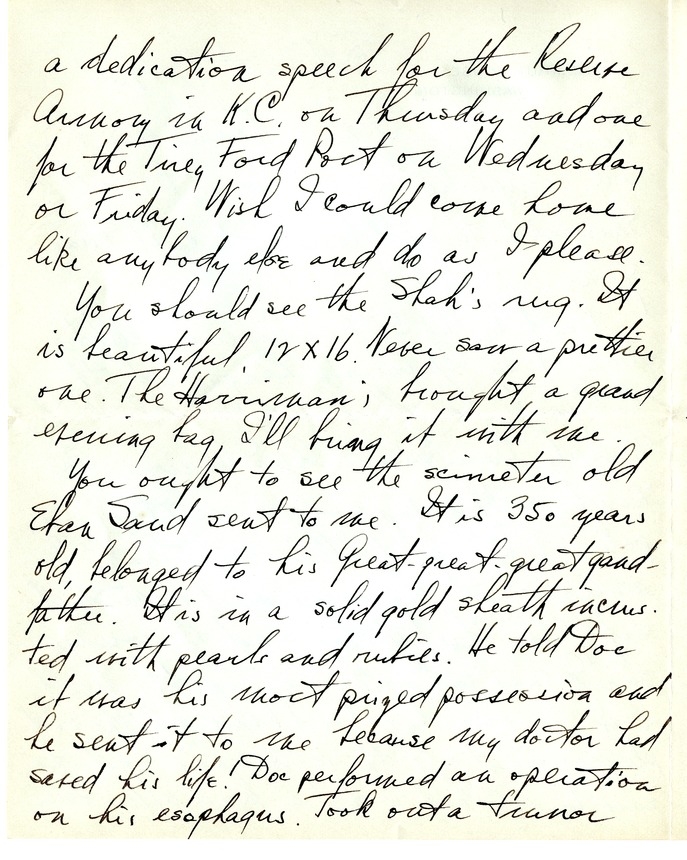 a dedication speech for the Reserve
Armory in K.C. on Thursday and one
for the Tirey Ford Post on Wednesday
or Friday. Wish I could come home
like anybody else and do as I please.
You should see the Shah's rug. It
is beautiful, 12 X 16. Never saw a prettier
one. The Harriman's brought a grand
evening bag, I'll bring it with me.
You ought to see the scimeter old
Eban Saud sent to me. It is 350 years
old, belonged to his Great-great-great grand-
father. It is in a solid gold sheath incrus-
ted with pearls and rubies. He told Doc
it was his most prized possession and
he sent it to me because my doctor had
saved his life! Doc performed an operation
on his esophagus. Took out a tumor